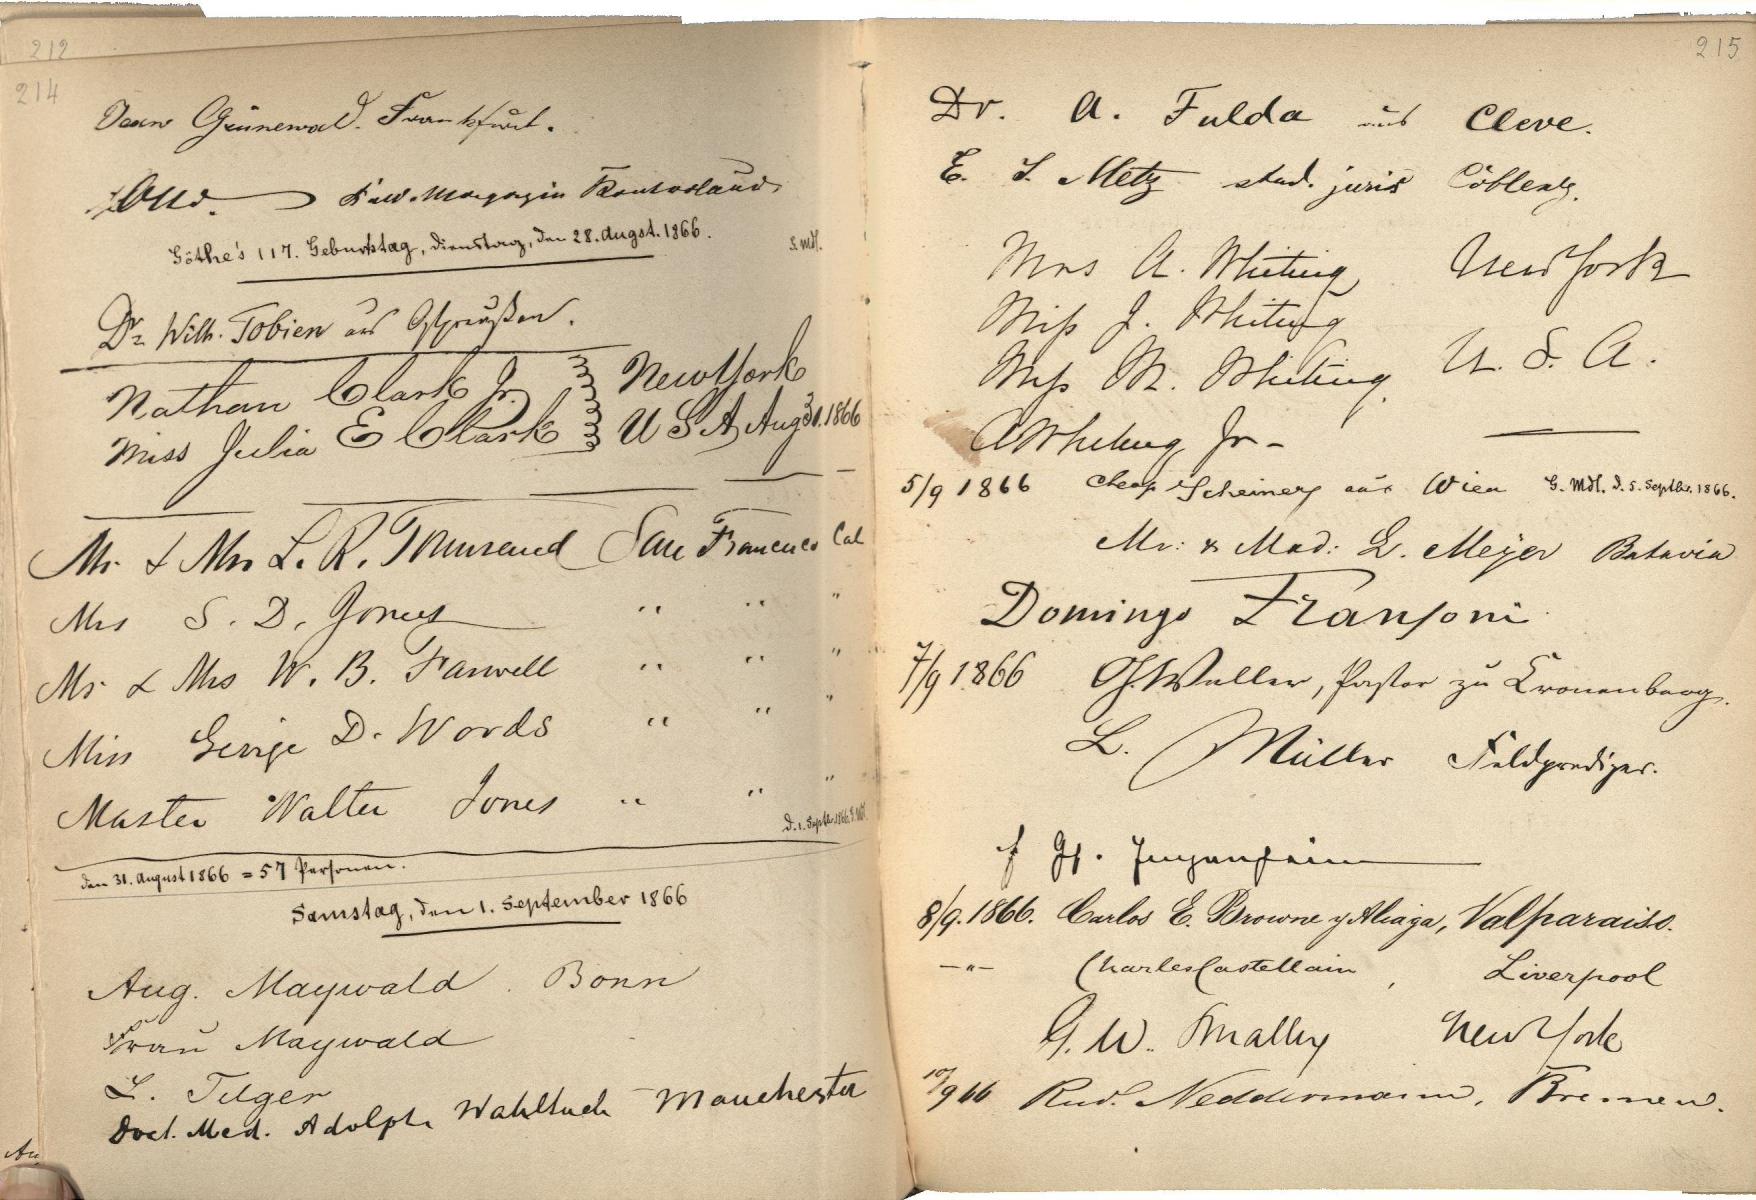 212
214
Grünewald. Frankfurt.
Otto.
Göthe's 117. Geburtstag, Dienstag, den 28. Augst. 1866.
Dr. Wilh. Tobien aus Ostpreußen.
Nathan Clark Jr. New York
Miss Julia E Clark U S A Aug 31. 1866
Mr & Mrs L. R. Townsend San Francisco Cal
Mrs S. D. Jones " " "
Mr & Mrs W. B. Farwell " " "
Miss George D. Words " " "
Master Walter Jones " " "
d. 1. Septbr. 1866. G. Mdl.
den 31. August 1866 = 57 Personen.
Samstag, den 1. September 1866
Aug. Maywald. Bonn
Frau Maywald
L. Tilger
Doct. Med. Adolph Wahltuch Manchester
215
Dr. A. Fulda aus Cleve.
E. S. Metz stud. juris Coblenz.
Mrs A. Whiting New York
Miss J. Whiting
Miss M. Whiting U. S. A.
A Whiting Jr -
5/9 1866 aus Wien G. Mdl. d. 5. Septbr. 1866.
Mr: & Mad: L. Meyer Batavia
Domingo Fransoni
7/9 1866 Waller, Pastor zu Kronenberg.
L. Müller Feldprediger.
Jugenheim
8/9. 1866. Carlos E. Browne y Aliaga, Valparaiso.
-"- Charles Castellain, Liverpool
G. W. Smalley New York
10/9 66 Rud. Neddermann, Bremen.